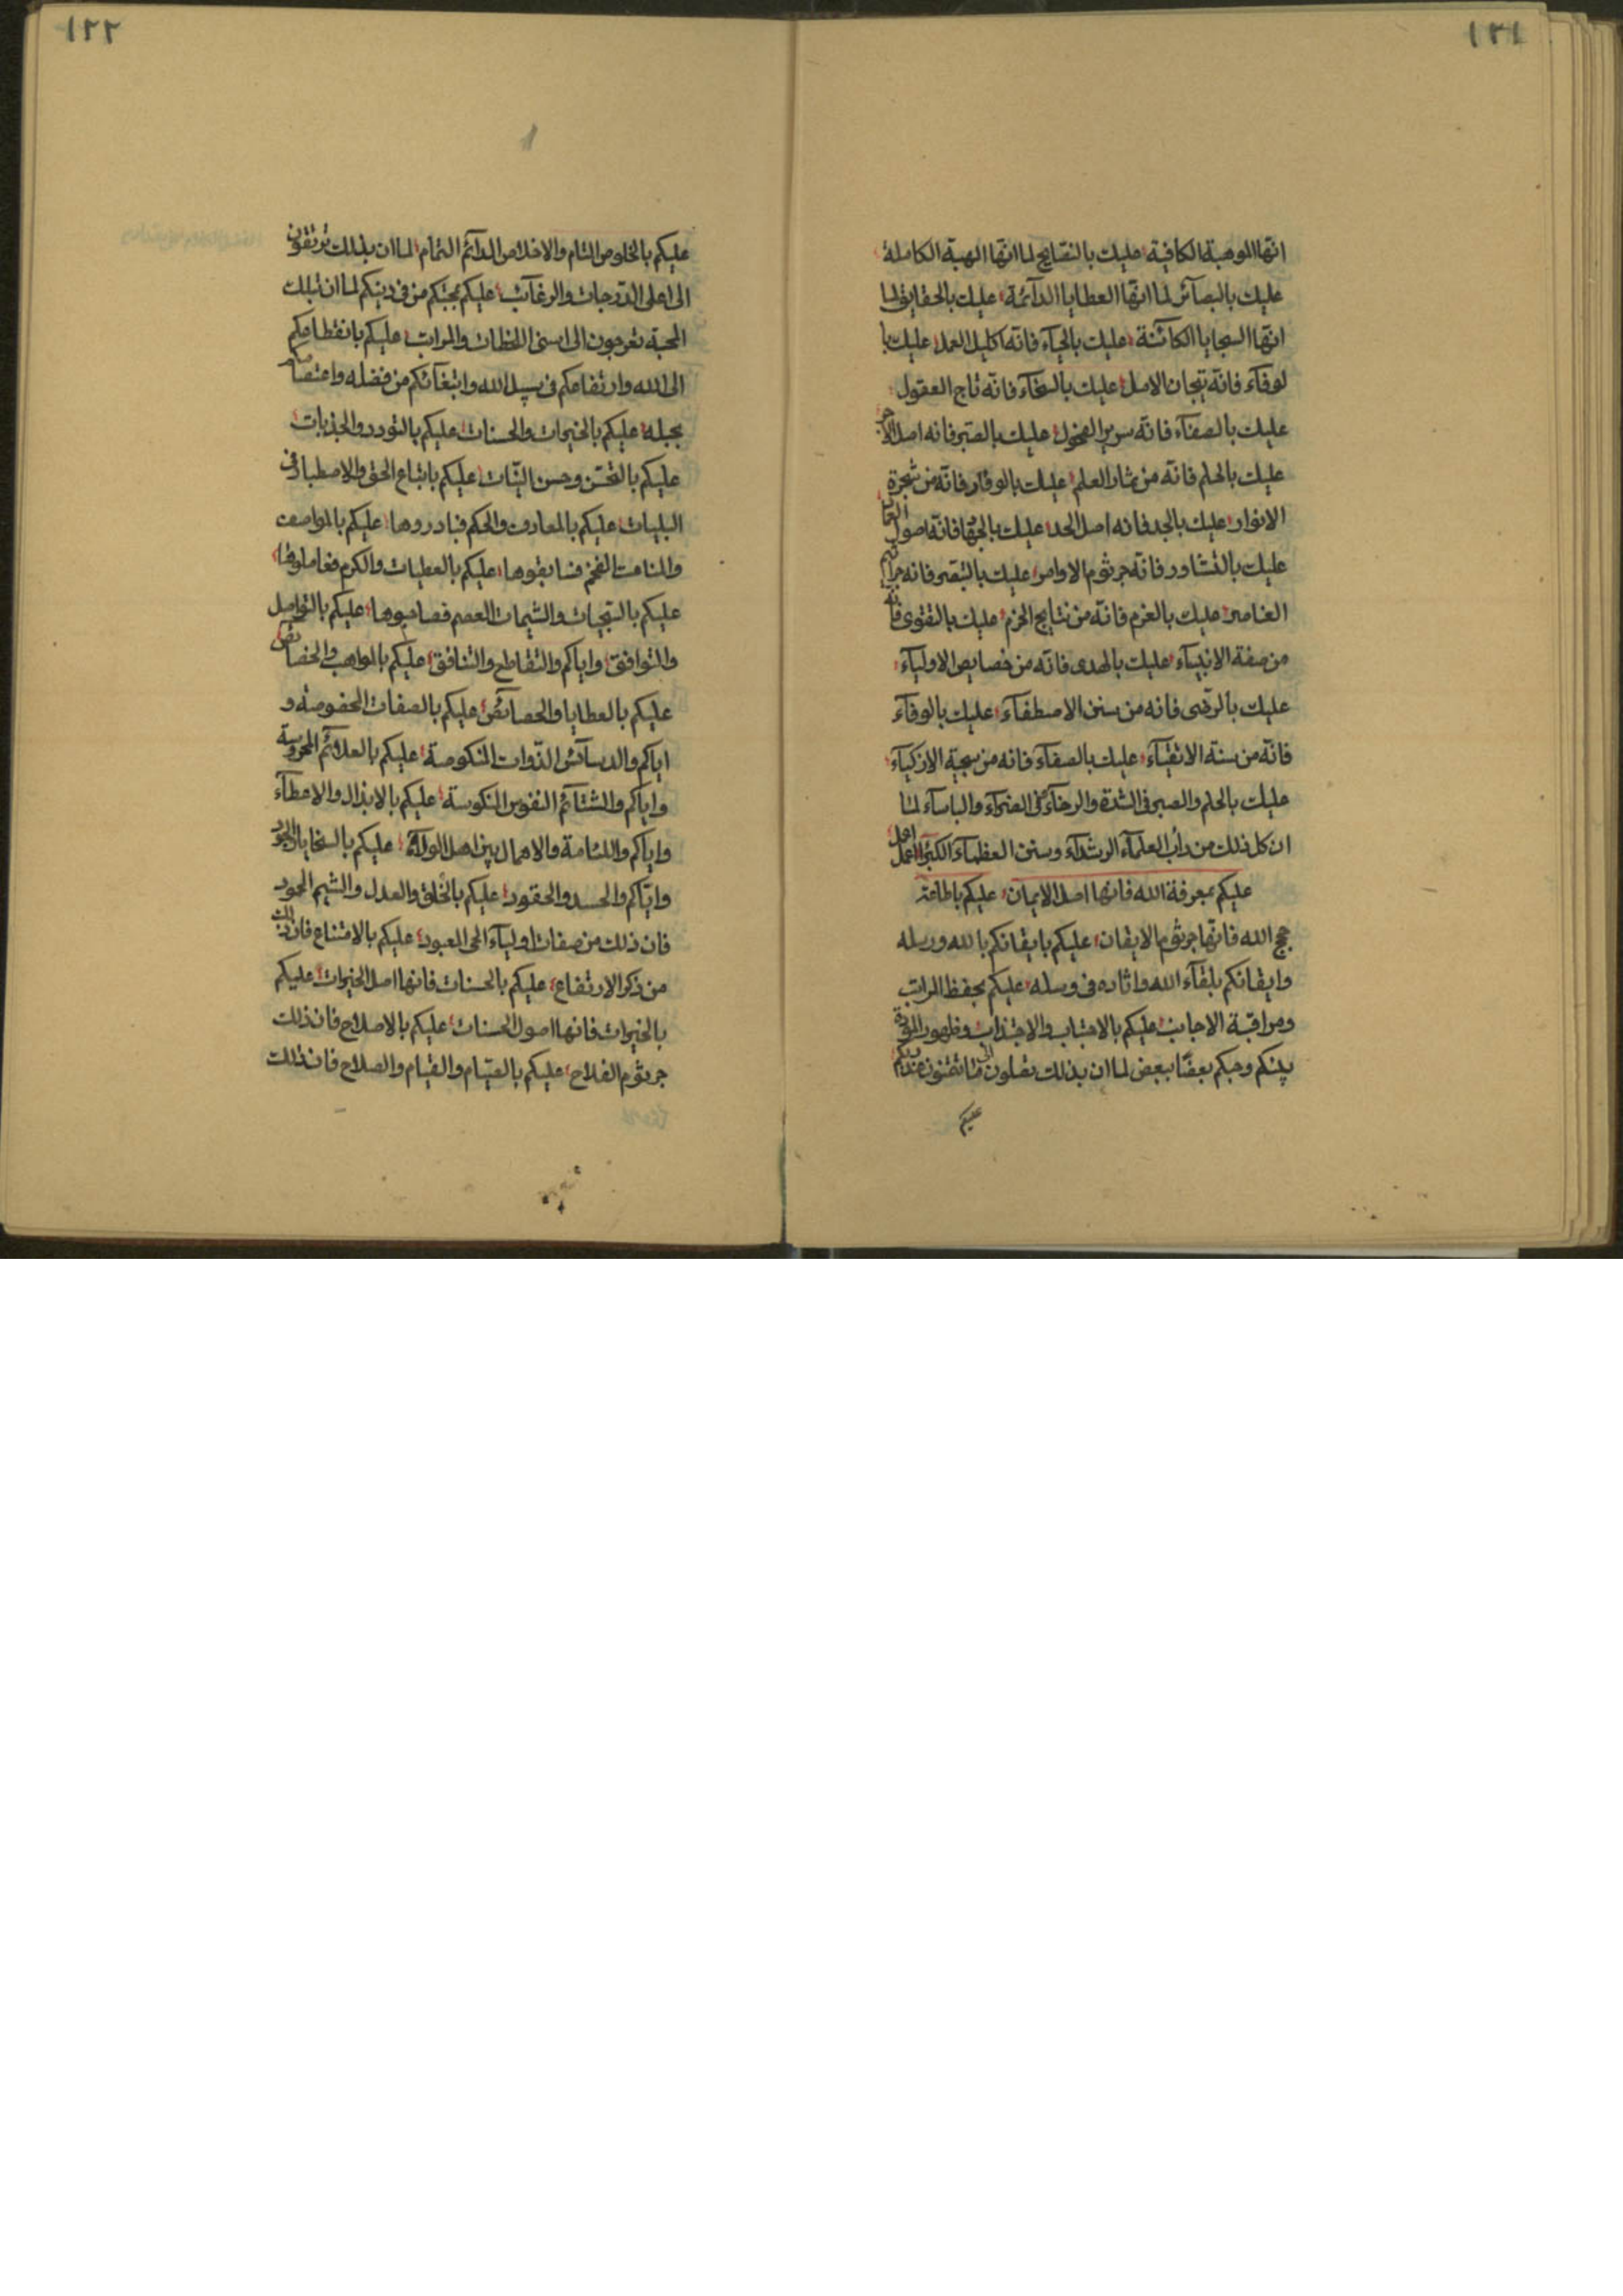 ١٢١
انّها الموهبة الكافية عليك بالنصايح لما انّها الهبة الكاملة
عليك بالبصآئر لما انّها العطايا الدآئمة عليك بالحقايق لما
انّها السجايا الكائنة عليك بالحيآء فانّه اكليل العمل عليك با
لوفآء فانّه تيجان الامل عليك بالسخآء فانّه تاج العقول
عليك بالصفآء فانّه سرير الفحول عليك بالصبر فانه اصل
عليك بالحلم فانّه من ثمار العلم عليك بالوقار فانّه من شجرة
الانوار عليك بالجد فانه اصل الحد عليك فانّه اصول
عليك بالتشاور فانّه جرثوم الاوامر عليك بالتبصر فانه
العناصر عليك بالعزم فانّه من نتايج الحزم عليك بالتقوى فانّه
من صفة الانبيآء عليك بالهدى فانّه من خصايص الاوليآء
عليك بالرضى فانه من سنن الاصطفآء عليك بالوفآء
فانّه من سنة الاتقيآء عليك بالصفآء فانه من سجية الازكيآء
عليك بالحلم والصبر فى الشدة والرخآء فى الضرآء والباسآء لما
ان كل ذلك من دأب العلمآء الرشدآء وسنن العظمآء الكبرآء
عليكم بمعرفة الله فانها اصل الايمان عليكم باطاعة
حجج الله فانّها جرثوم الايقان عليكم بايقانكم بالله ورسله
وايقانكم بلقآء الله واثاره فى ورسله عليكم بحفظ المراتب
ومراقبة الاجانب عليكم بالاجتناب والاجتذاب وظهور المودة
بينكم وحبكم بعضًا ببعض لما ان بذلك تصلون الى ما تتمنون عند ربكم
عليكم
١٢٢
عليكم بالخلوص التام والاخلاص الدآئم التمام لما ان بذلك ترتقون
الى اعلى الدّرجات والرغآئب عليكم بحبّكم من فى دينكم لما ان تلك
المحبة تعرجون الى اسنى اللحظات والمراتب عليكم بانقطاعكم
الى الله وارتفاعكم فى سبيل الله وابتغآئكم من فضله واعتصامكم
بحبله عليكم بالخيرات والحسنات عليكم بالتودد والجذبات
عليكم بالتحسّن وحسن النيّات عليكم باتباع الحق والاصطبار فى
البليات عليكم بالمعارف والحكم فبادروها عليكم بالمواصف
والمناعت الفخم فسابقوها عليكم بالعطيات والكرم فعاملوها
عليكم بالسّجيات والشيمات العصم فصاحبوها عليكم بالتواصل
والتوافق واياكم والتقاطع والتنافق عليكم بالمواهب والخصايص
عليكم بالعطايا والخصآئص عليكم بالصفات المخصوصة و
اياكم والدسآئس الذّوات المنكوصة عليكم بالعلآئم المحروسة
واياكم والشتآئم النفوس المنكوسة عليكم بالابذال والاعطآء
واياكم واللئامة والاهمال بين اهل الولآء عليكم بالسخايا والجود
وايّاكم والحسد والحقود عليكم بالخلق والعدل والشيم المحمود
فان ذلك من صفات اوليآء الحى المعبود عليكم بالامتناع فان ذلك
من ذكر الارتفاع عليكم بالحسنات فانها اصل الخيرات عليكم
بالخيرات فانها اصول الحسنات عليكم بالاصلاح فان ذلك
جرثوم الفلاح عليكم بالصيام والقيام والصلاح فان ذلك